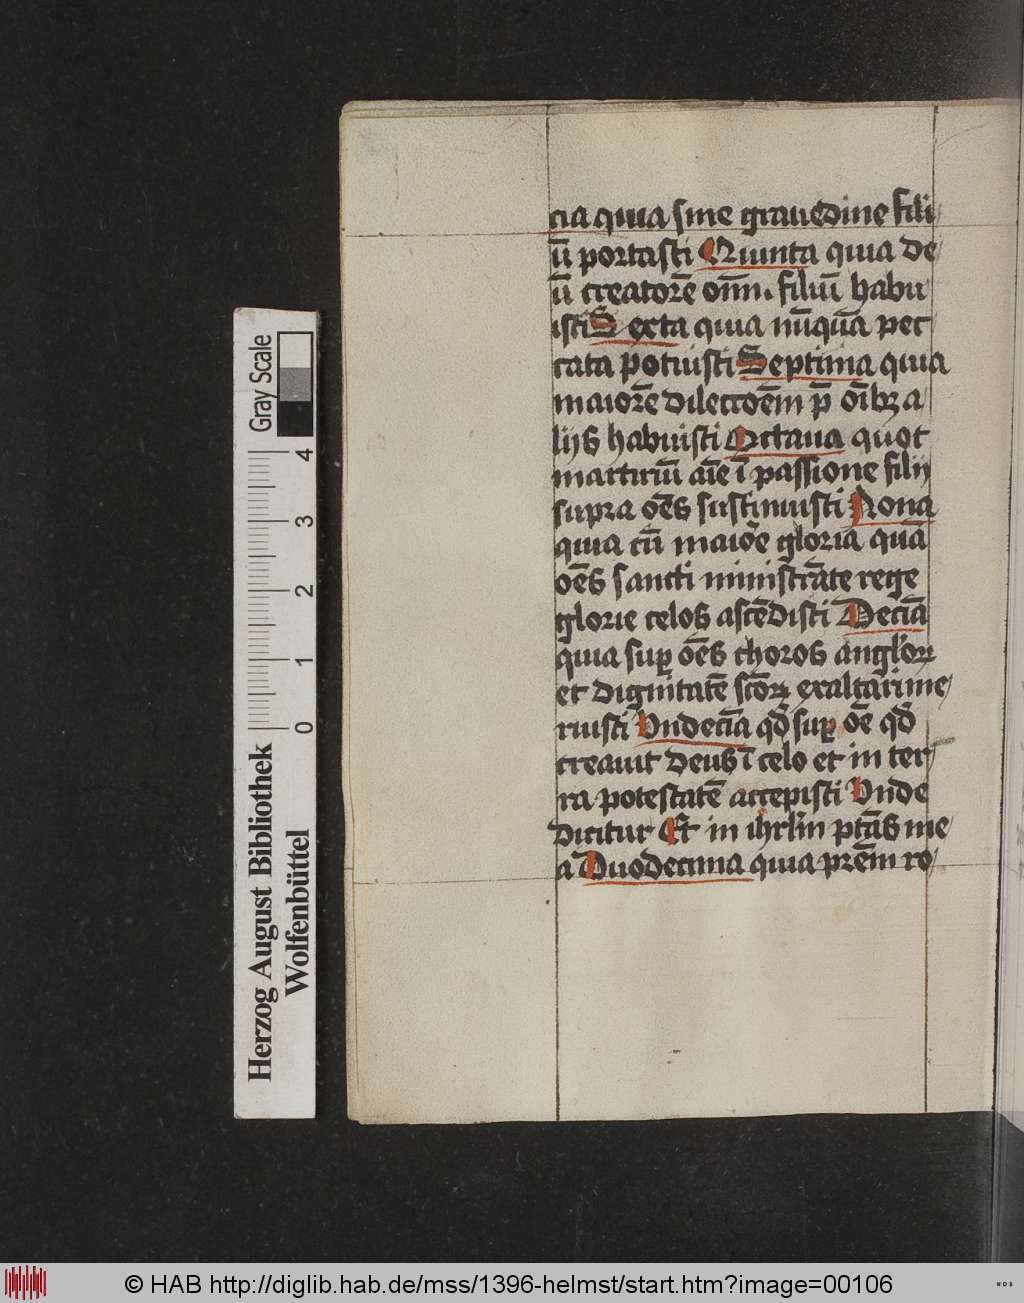 cia quia sine grauedine fili
ū portasti Quinta quia de
ū creatorē om̄. filiū habu
isti Sexta quia nūquā pec
cata potuisti Septima quia
maiorē dilectōēm p̄ oībꝫ a
lijs habuisti Octaua quot
martiriū aīe ī passione filij
supra oēs sustinuisti Nona
quia cū maiōe gloria quā
oēs sancti ministrāte rege
glorie celos ascēdisti Deciā
quia suꝑ oēs choros anglorꝝ
et dignitatē scōꝝ exaltari me
ruisti Undeciā qđ suꝑ ōe qđ
creauit deus ī celo et in ter
ra potestatē accepisti Unde
dicitur Et in ihrlm̄ ptās me
a Duodecima quia prēm ro
Herzog August Bibliothek
Wolfenbüttel
0 1 2 3 4
Gray Scale
© HAB http://diglib.hab.de/mss/1396-helmst/start.htm?image=00106
WDB